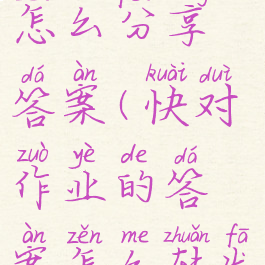 怎么分享
dá àn kuài duì
答案(快对
zuò yè de dá
作业的答
àn zěn me zhuǎn fā
案怎么转发